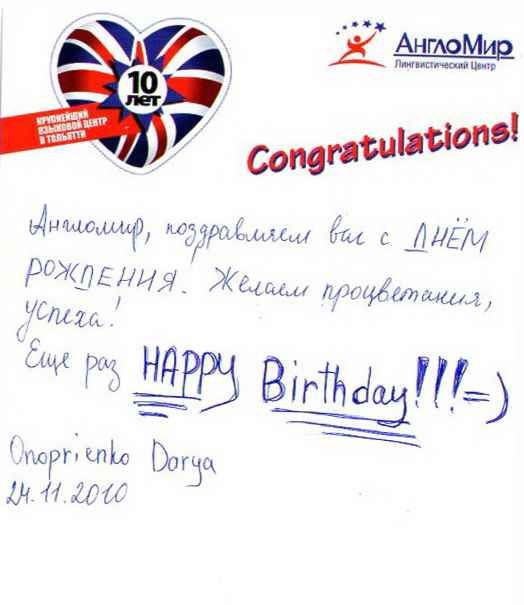 10
ЛЕТ
КРУПНЕЙШИЙ
ЯЗЫКОВОЙ ЦЕНТР
В ТОЛЬЯТТИ
АнглоМир
Лингвистический Центр
Congratulations!
Англомир, поздравляем вас с ДНЁМ
РОЖДЕНИЯ! Желаем процветания,
успеха!
Еще раз HAPPY Birthday!!!=)
Onoprienko Darya
24.11.2010